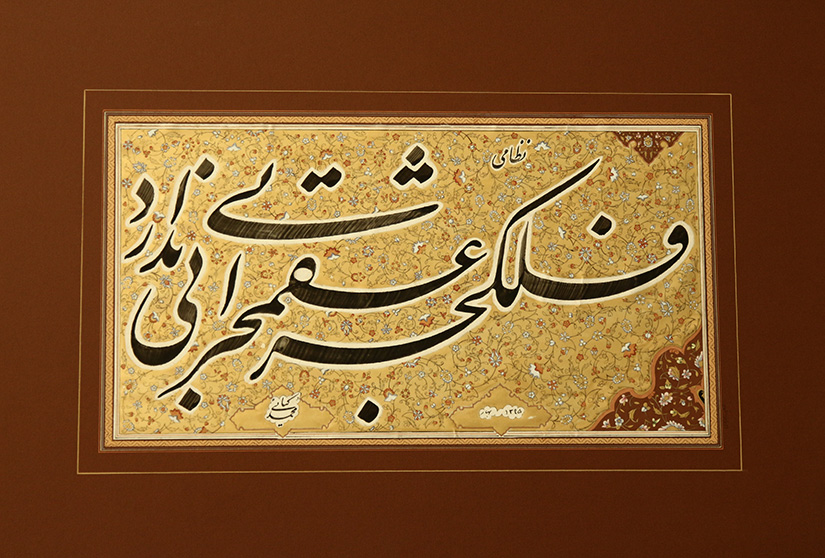 نظامی
فلک جز عشق محرابی ندارد
۱۳۹۵